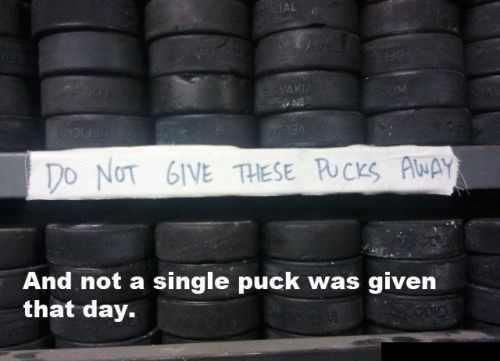 DO NOT GIVE THESE PUCKS AWAY
And not a single puck was given
that day.